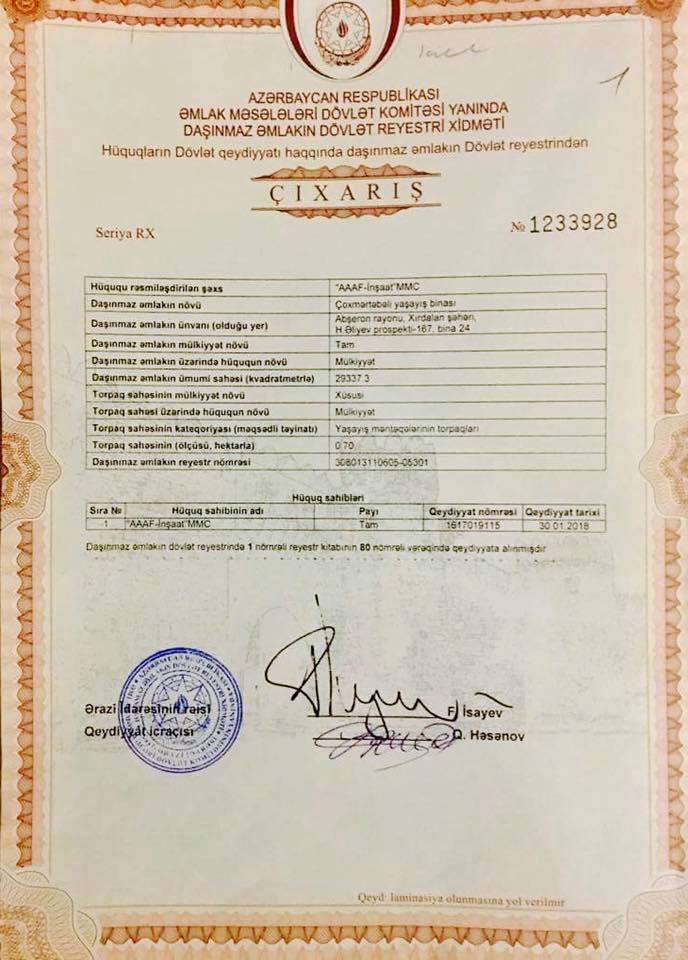 1
AZƏRBAYCAN RESPUBLİKASI
ƏMLAK MƏSƏLƏLƏRİ DÖVLƏT KOMİTƏSİ YANINDA
DAŞINMAZ ƏMLAKIN DÖVLƏT REYESTRİ XİDMƏTİ
Hüquqların Dövlət qeydiyyatı haqqında daşınmaz əmlakın Dövlət reyestrindən
ÇIXARIŞ
Seriya RX № 1233928
Hüququ rəsmiləşdirilən şəxs "AAAF-İnşaat"MMC
Daşınmaz əmlakın növü Çoxmərtəbəli yaşayış binası
Daşınmaz əmlakın ünvanı (olduğu yer) Abşeron rayonu, Xırdalan şəhəri,
H.Əliyev prospekti-167, bina 24
Daşınmaz əmlakın mülkiyyət növü Tam
Daşınmaz əmlakın üzərində hüququn növü Mülkiyyət
Daşınmaz əmlakın ümumi sahəsi (kvadratmetrlə) 29337.3
Torpaq sahəsinin mülkiyyət növü Xüsusi
Torpaq sahəsi üzərində hüququn növü Mülkiyyət
Torpaq sahəsinin kateqoriyası (məqsədli təyinatı) Yaşayış məntəqələrinin torpaqları
Torpaq sahəsinin (ölçüsü, hektarla) 0.70
Daşınmaz əmlakın reyestr nömrəsi 308013110605-05301
Hüquq sahibləri
Sıra № Hüquq sahibinin adı Payı Qeydiyyat nömrəsi Qeydiyyat tarixi
1 "AAAF-İnşaat"MMC Tam 1617019115 30.01.2018
Daşınmaz əmlakın dövlət reyestrində 1 nömrəli reyestr kitabının 80 nömrəli vərəqində qeydiyyata alınmışdır
Ərazi İdarəsinin rəisi F. İsayev
Qeydiyyat icraçısı Q. Həsənov
Qeyd: laminasiya olunmasına yol verilmir